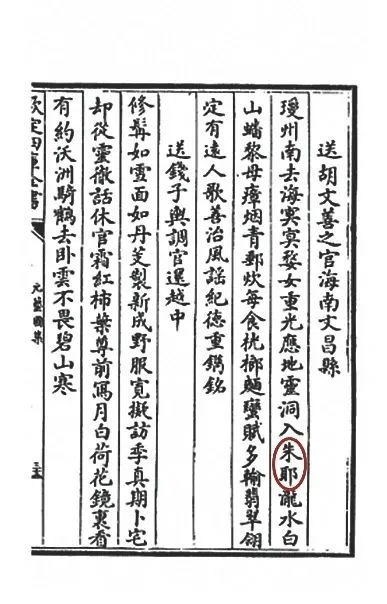 送胡文善之官海南文昌縣
瓊州南去海冥冥婺女重光應地靈洞入朱耶瀧水白
山蟠黎母瘴烟青郵炊每食桄榔麵蠻賦多輸翡翠翎
定有遠人歌善治風謡紀徳重鐫銘
送錢子輿調官還越中
修髯如雲面如丹芰製新成野服寛擬訪季真期卜宅
却從靈徹話休官霜紅柿葉尊前寫月白荷花鏡裏看
有約沃洲騎鶴去卧雲不畏碧山寒
欽定四庫全書
元藝圃集